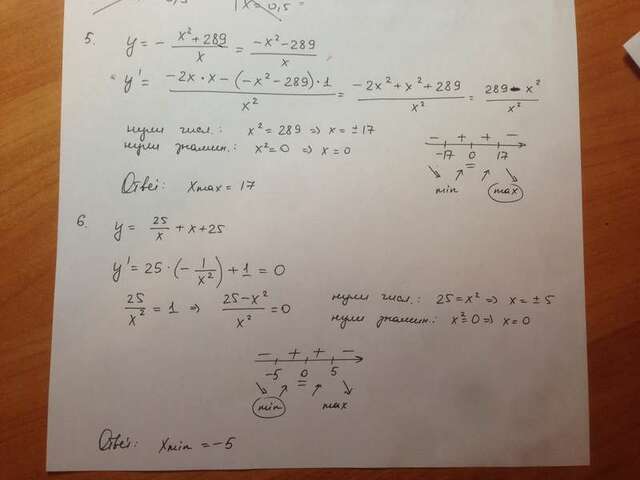 x = 0,5
5. y = - (x² + 289)/x = (-x² - 289)/x
y' = (-2x · x - (-x² - 289) · 1)/x² = (-2x² + x² + 289)/x² = (289 - x²)/x²
нули числ.: x² = 289 => x = ±17
нули знамин.: x² = 0 => x = 0
- + + -
-17 0 17
min max
Ответ: xmax = 17
6. y = 25/x + x + 25
y' = 25 · (- 1/x²) + 1 = 0
25/x² = 1 => (25 - x²)/x² = 0
нули числ.: 25 = x² => x = ±5
нули знамин.: x² = 0 => x = 0
- + + -
-5 0 5
min max
Ответ: xmin = -5